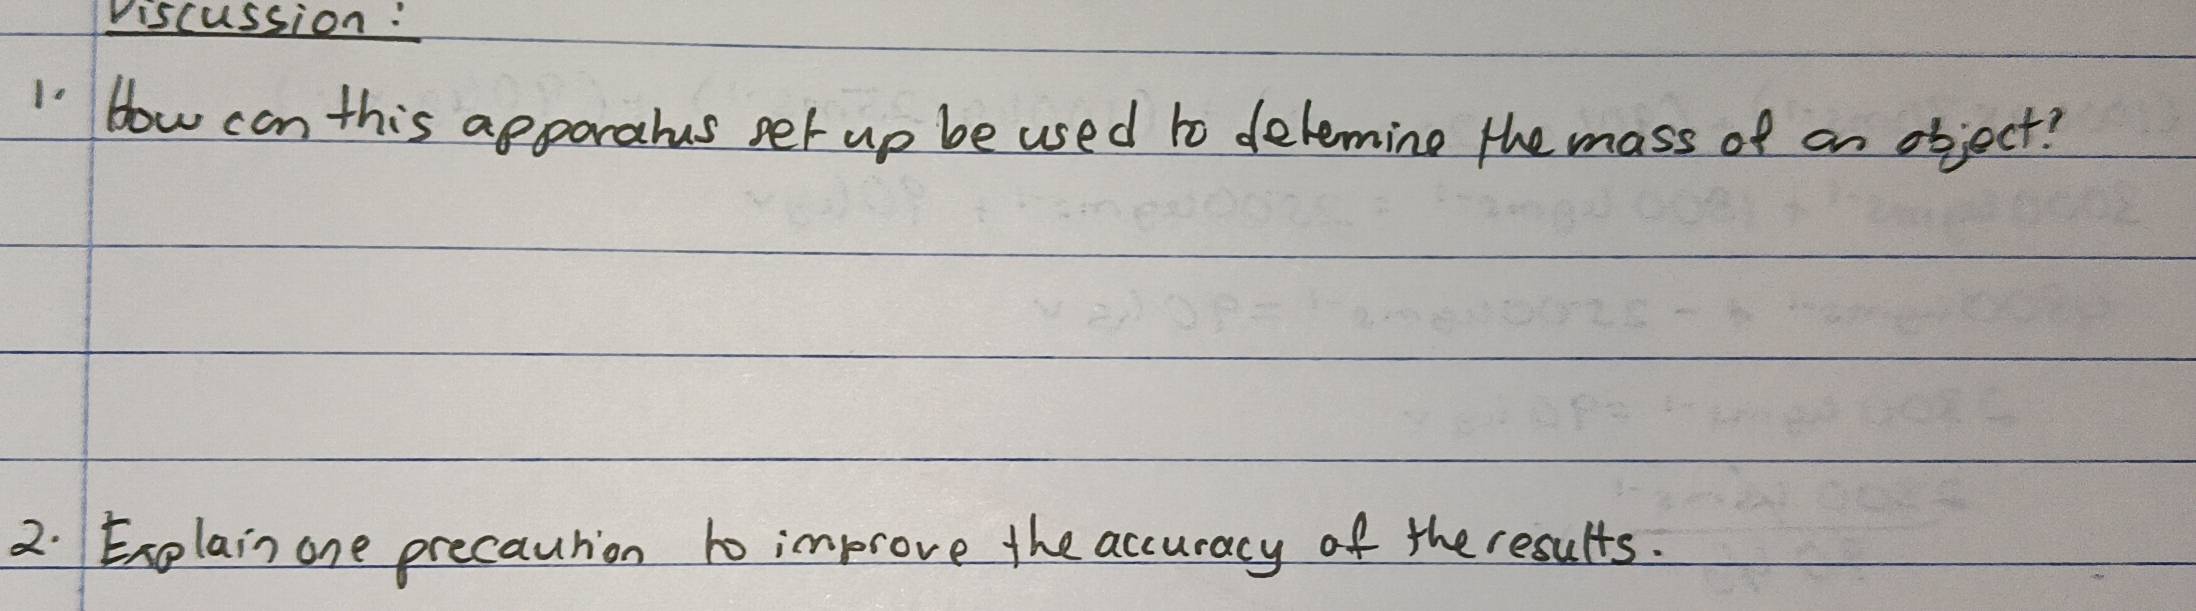 Discussion:
1. How can this apparatus set up be used to detemine the mass of an object?
2. Explain one precaution to improve the accuracy of the results.